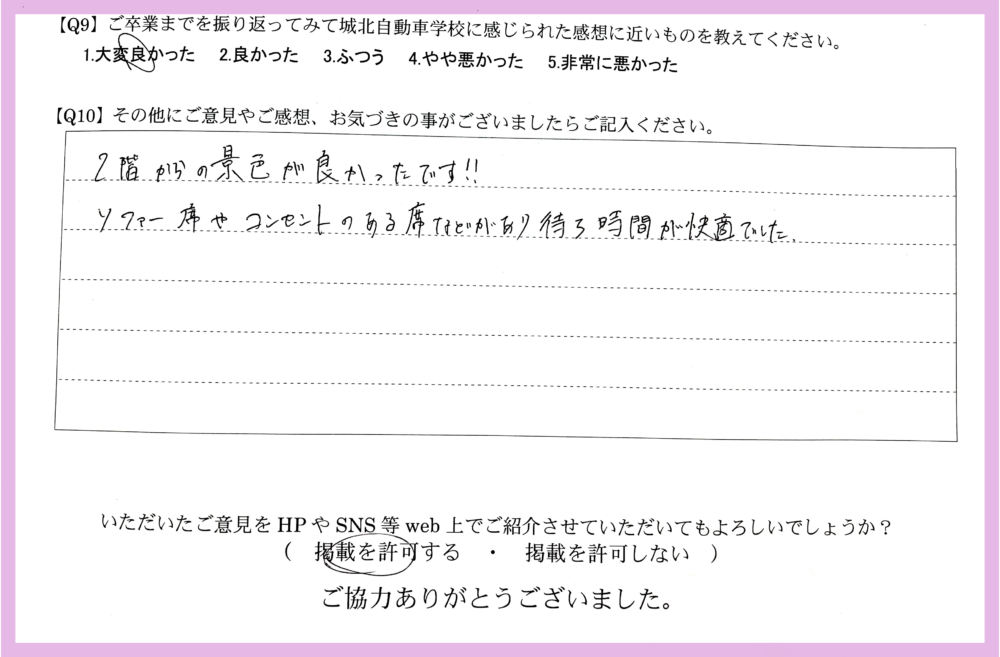 【Q9】ご卒業までを振り返ってみて城北自動車学校に感じられた感想に近いものを教えてください。
1.大変良かった 2.良かった 3.ふつう 4.やや悪かった 5.非常に悪かった
【Q10】その他にご意見やご感想、お気づきの事がございましたらご記入ください。
2階からの景色が良かったです!!
ソファー席やコンセントのある席などがあり待つ時間が快適でした。
いただいたご意見をHPやSNS等web上でご紹介させていただいてもよろしいでしょうか？
（ 掲載を許可する ・ 掲載を許可しない ）
ご協力ありがとうございました。